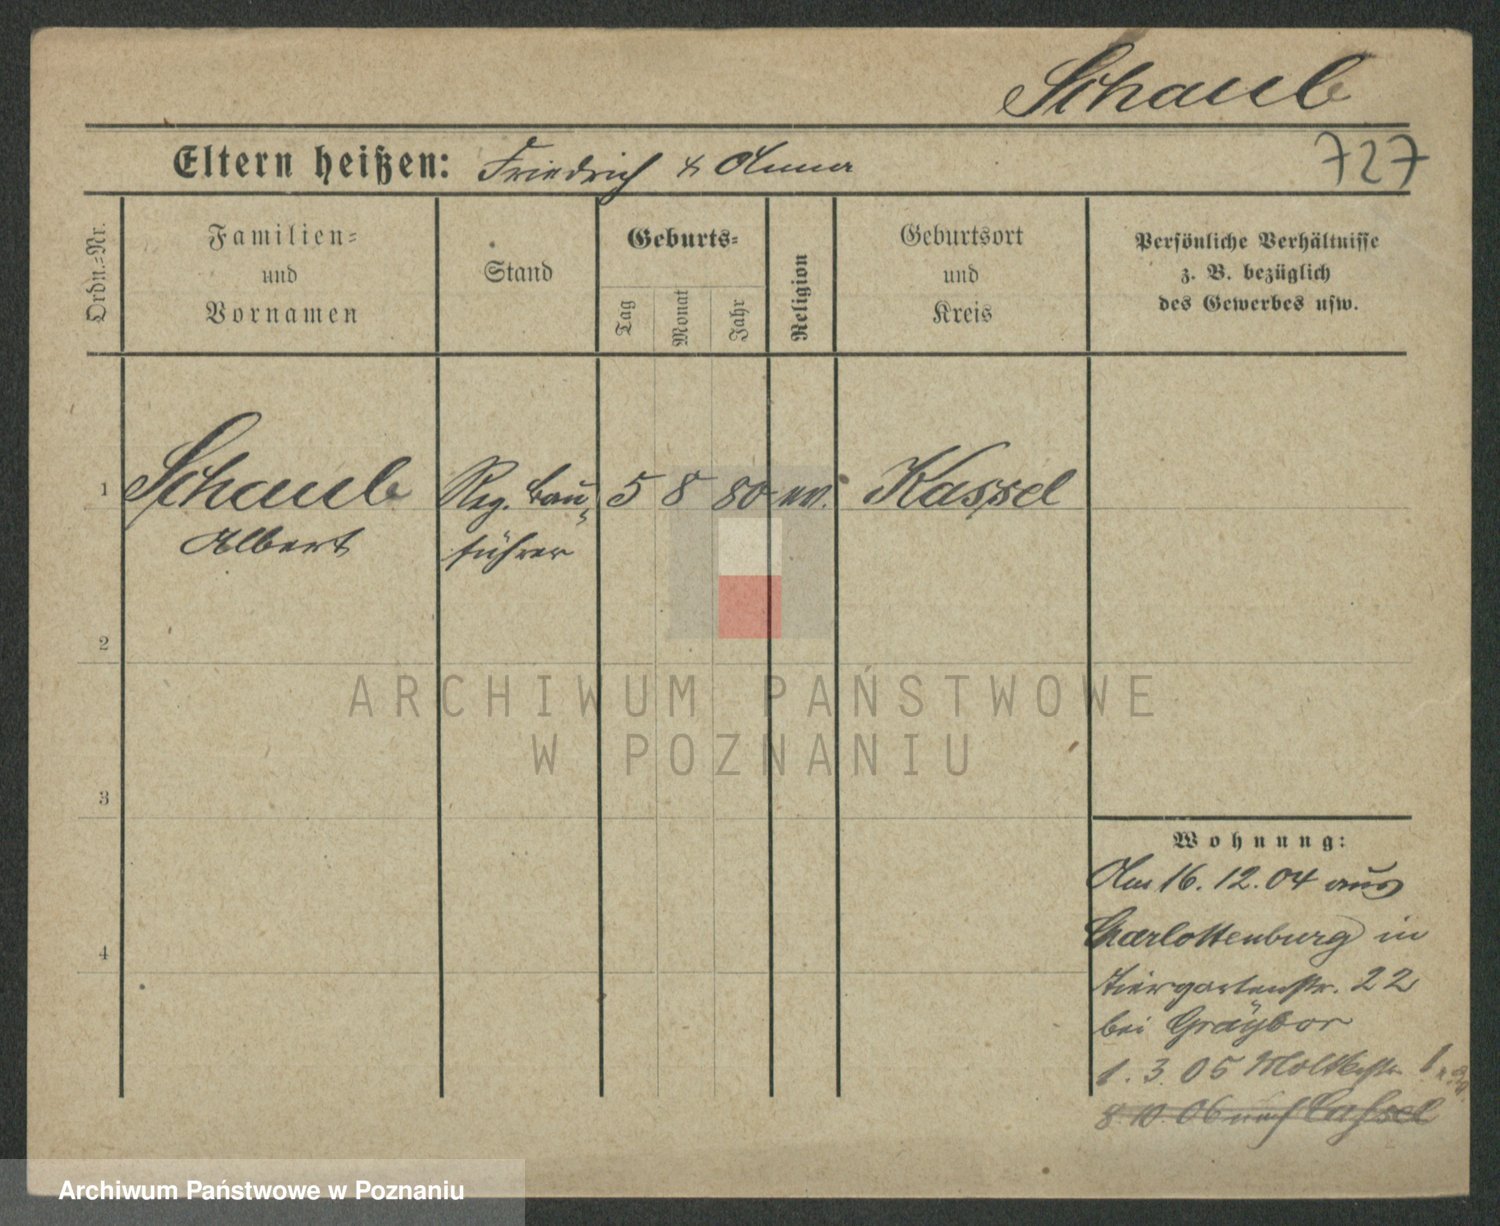 Schaub
Eltern heißen: Friedrich & Anna
727
Ordn.=Nr.
Familien=
und
Vornamen
Stand
Geburts=
Tag
Monat
Jahr
Religion
Geburtsort
und
Kreis
Persönliche Verhältnisse
z. B. bezüglich
des Gewerbes usw.
1 Schaub Reg. Bau= 5 8 80 ev. Kassel
Albert führer
2
3
4
Wohnung:
Am 16.12.04 aus
Charlottenburg in
Tiergartenstr. 22
bei
1.3.05 Moltkestr.
8.10.06 nach Cassel
ARCHIWUM PAŃSTWOWE
W POZNANIU
Archiwum Państwowe w Poznaniu